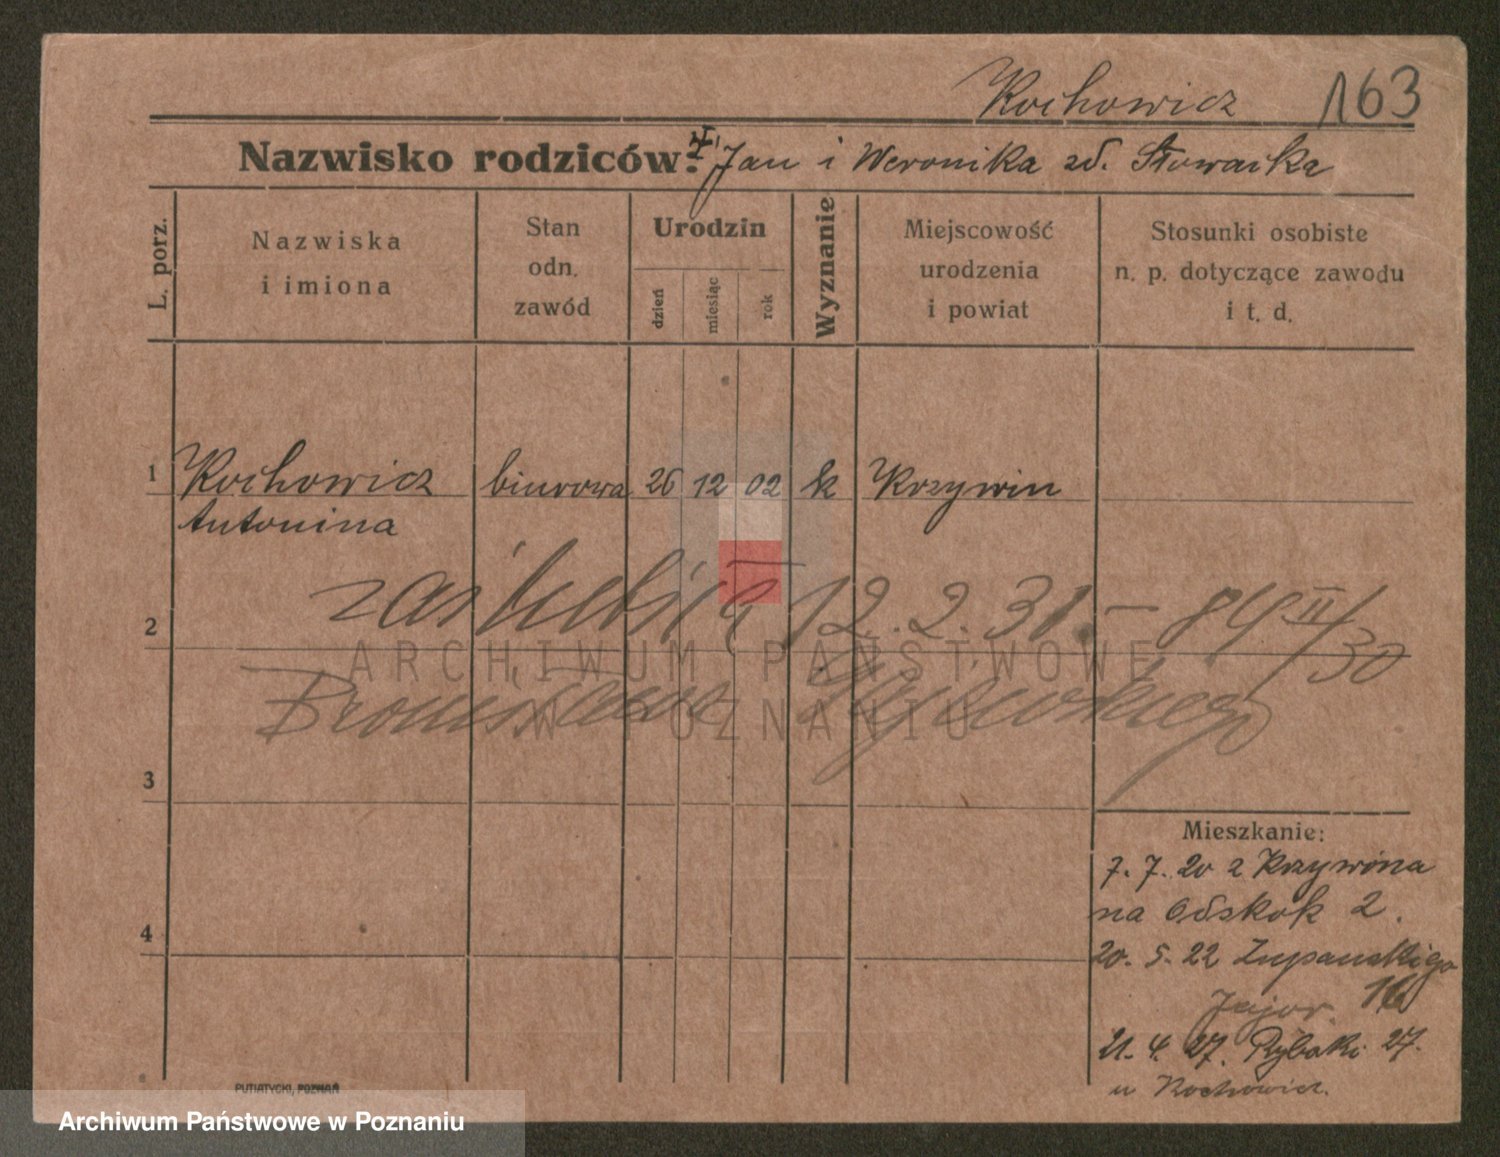 Kochowicz 163
Nazwisko rodziców: Jan i Weronika zd. Słowacka
L. porz.
Nazwiska
i imiona
Stan
odn.
zawód
Urodzin
dzień
miesiąc
rok
Wyznanie
Miejscowość
urodzenia
i powiat
Stosunki osobiste
n. p. dotyczące zawodu
i t. d.
1 Kochowicz biurowa 26 12 02 k Krzywin
Antonina
zaślubiła 12.2.31. –
2
ARCHIWUM PAŃSTWOWE
W POZNANIU
Bronisława
3
4
Mieszkanie:
7. 7. 20 z Krzywina
na Odskok 2.
20. 5. 22 Żupańskiego
16
21. 4. 27. Rybaki 27.
u Kochowicz.
PUTIATYCKI, POZNAŃ
Archiwum Państwowe w Poznaniu